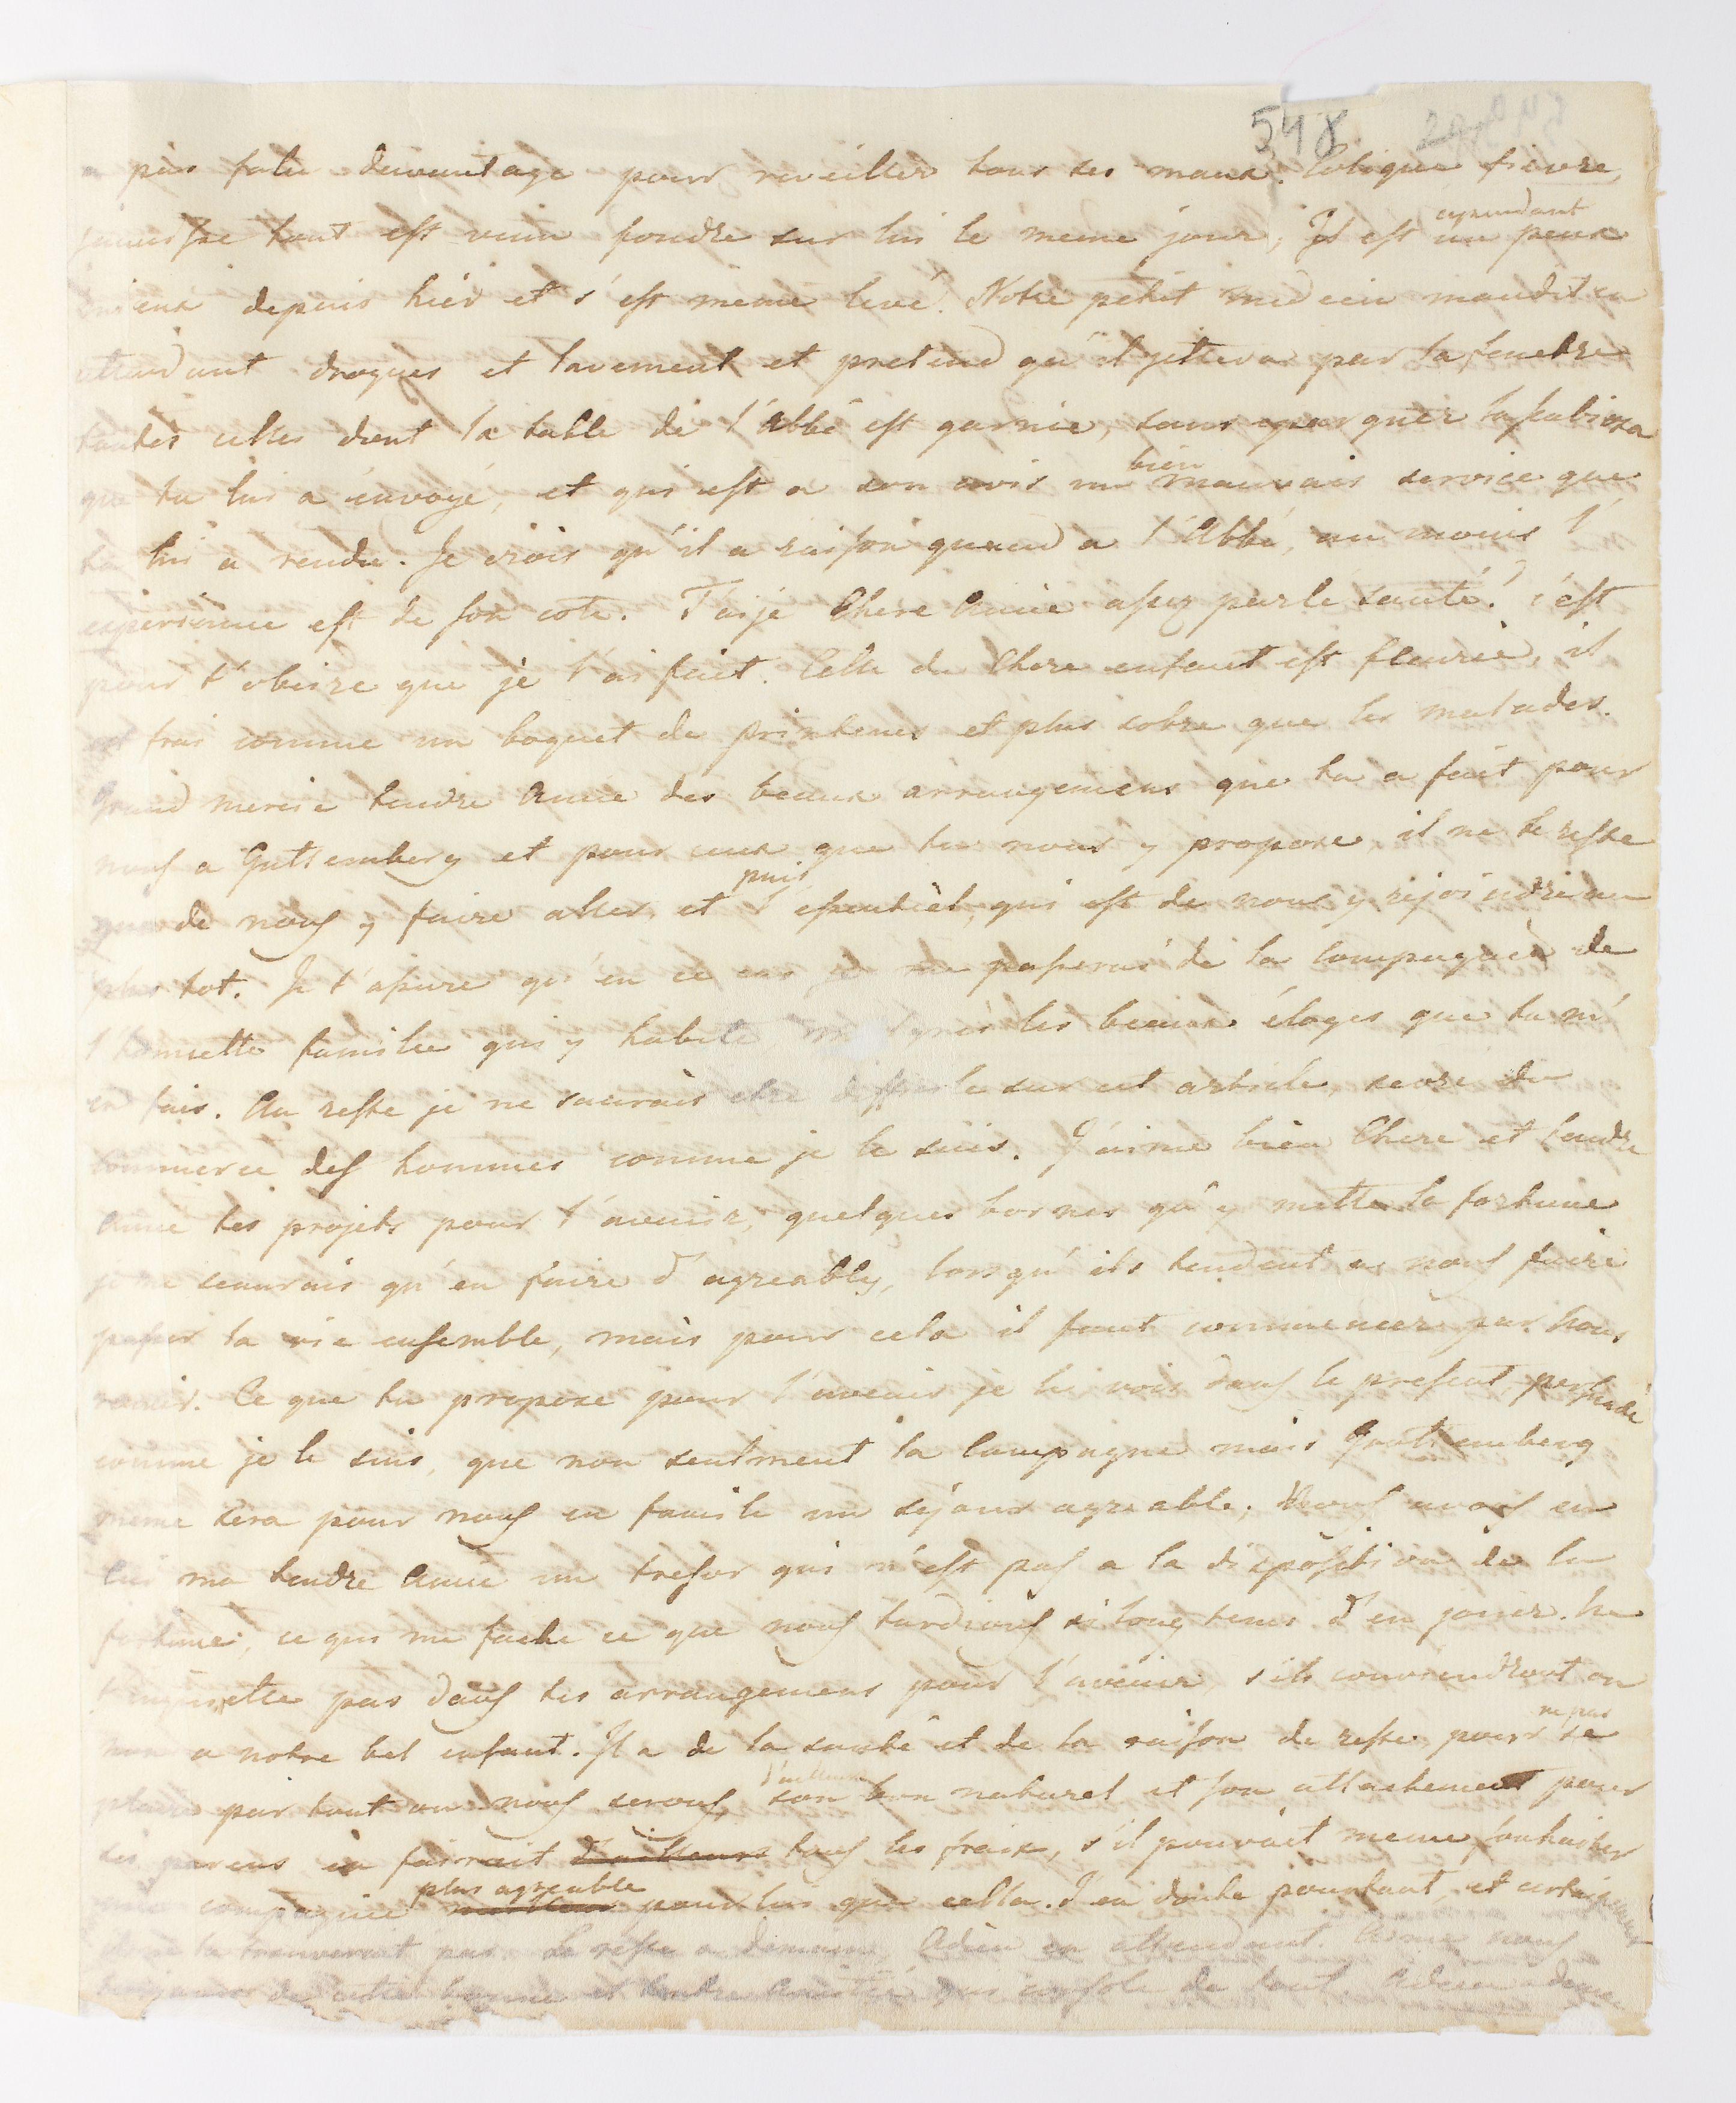 548
pas falu davantage pour reveiller tous ses maux. Colique fievre,
tout est venu fondre sur lui le meme jour, Il est cependant un peux
mieux depuis hier et s'est meme levé. Notre petit medecin maudit en
attendant drogues et lavement et pretend qu'il jettera par la fenetre
toutes celles dont la table de l'Abbé est garnie, sans epargner la
que tu lui a envoyé, et qui est a son avis un bien mauvais service que
tu lui a rendu. Je crois qu'il a raison quand a l'Abbé, au moins l'
experience est de son coté. T'aije Chere Amie assez parle santé? c'est
pour t'obeire que je l'ai fait. Celle du Chere enfant est fleurie, il
est frai comme un boquet de printems et plus sobre que les malades.
Grand mercie tendre Amie des beaux arrangemens que tu a fait pour
nous a Guttemberg et pour ceux que tu nous y propose, il ne te reste
que de nous y faire aller, et puis l'essentièl, qui est de nous y rejoindre au
plus tot. Je t'assure qu'en ce cas je me passerai de la compagnie de
l'honnette famille qui y habite malgrés les beaux éloges que tu m'
en fais. Au reste je ne saurais etre difficile sur cet article, sevré du
commerce des hommes comme je le suis. J'aime bien Chere et tendre
Amie tes projets pour l'avenir, quelques bornes qu'y mette la fortune
je ne scaurais qu'en faire d'agreables, lorsqu'ils tendent a nous faire
passer la vie ensemble, mais pour cela il faut commencer par nous
reunir. Ce que tu propose pour l'avenir je le vois dans le present, persuadé
comme je le suis, que non seulment la Campagne mais Gouttemberg
meme sera pour nous en famile un sejour agreable; Nous avons en
lui ma tendre Amie un tresor qui n'est pas a la disposition de la
fortune, ce qui me fache ce que nous tardions si long tems d'en jouir. Ne
t'inquiette pas dans tes arrangemens pour l'avenir, s'ils conviendront ou
non a notre bel enfant. Il a de la santé et de la raison de reste, pour ne pas se
plaire par tout ou nous serons, d'ailleurs son bon naturel et son attachement pour
ses parens en fairait d'ailleurs tous les fraix, s'il pouvait meme souhaiter
une compagnie plus agreable pour lui que cella. J'en doute pourtant et certainement
la trouverait pas. Le reste a demain, Adieu en attendant. Aime nous
toujours de cette bonne et tendre Amitié qui console de tout. Adieu